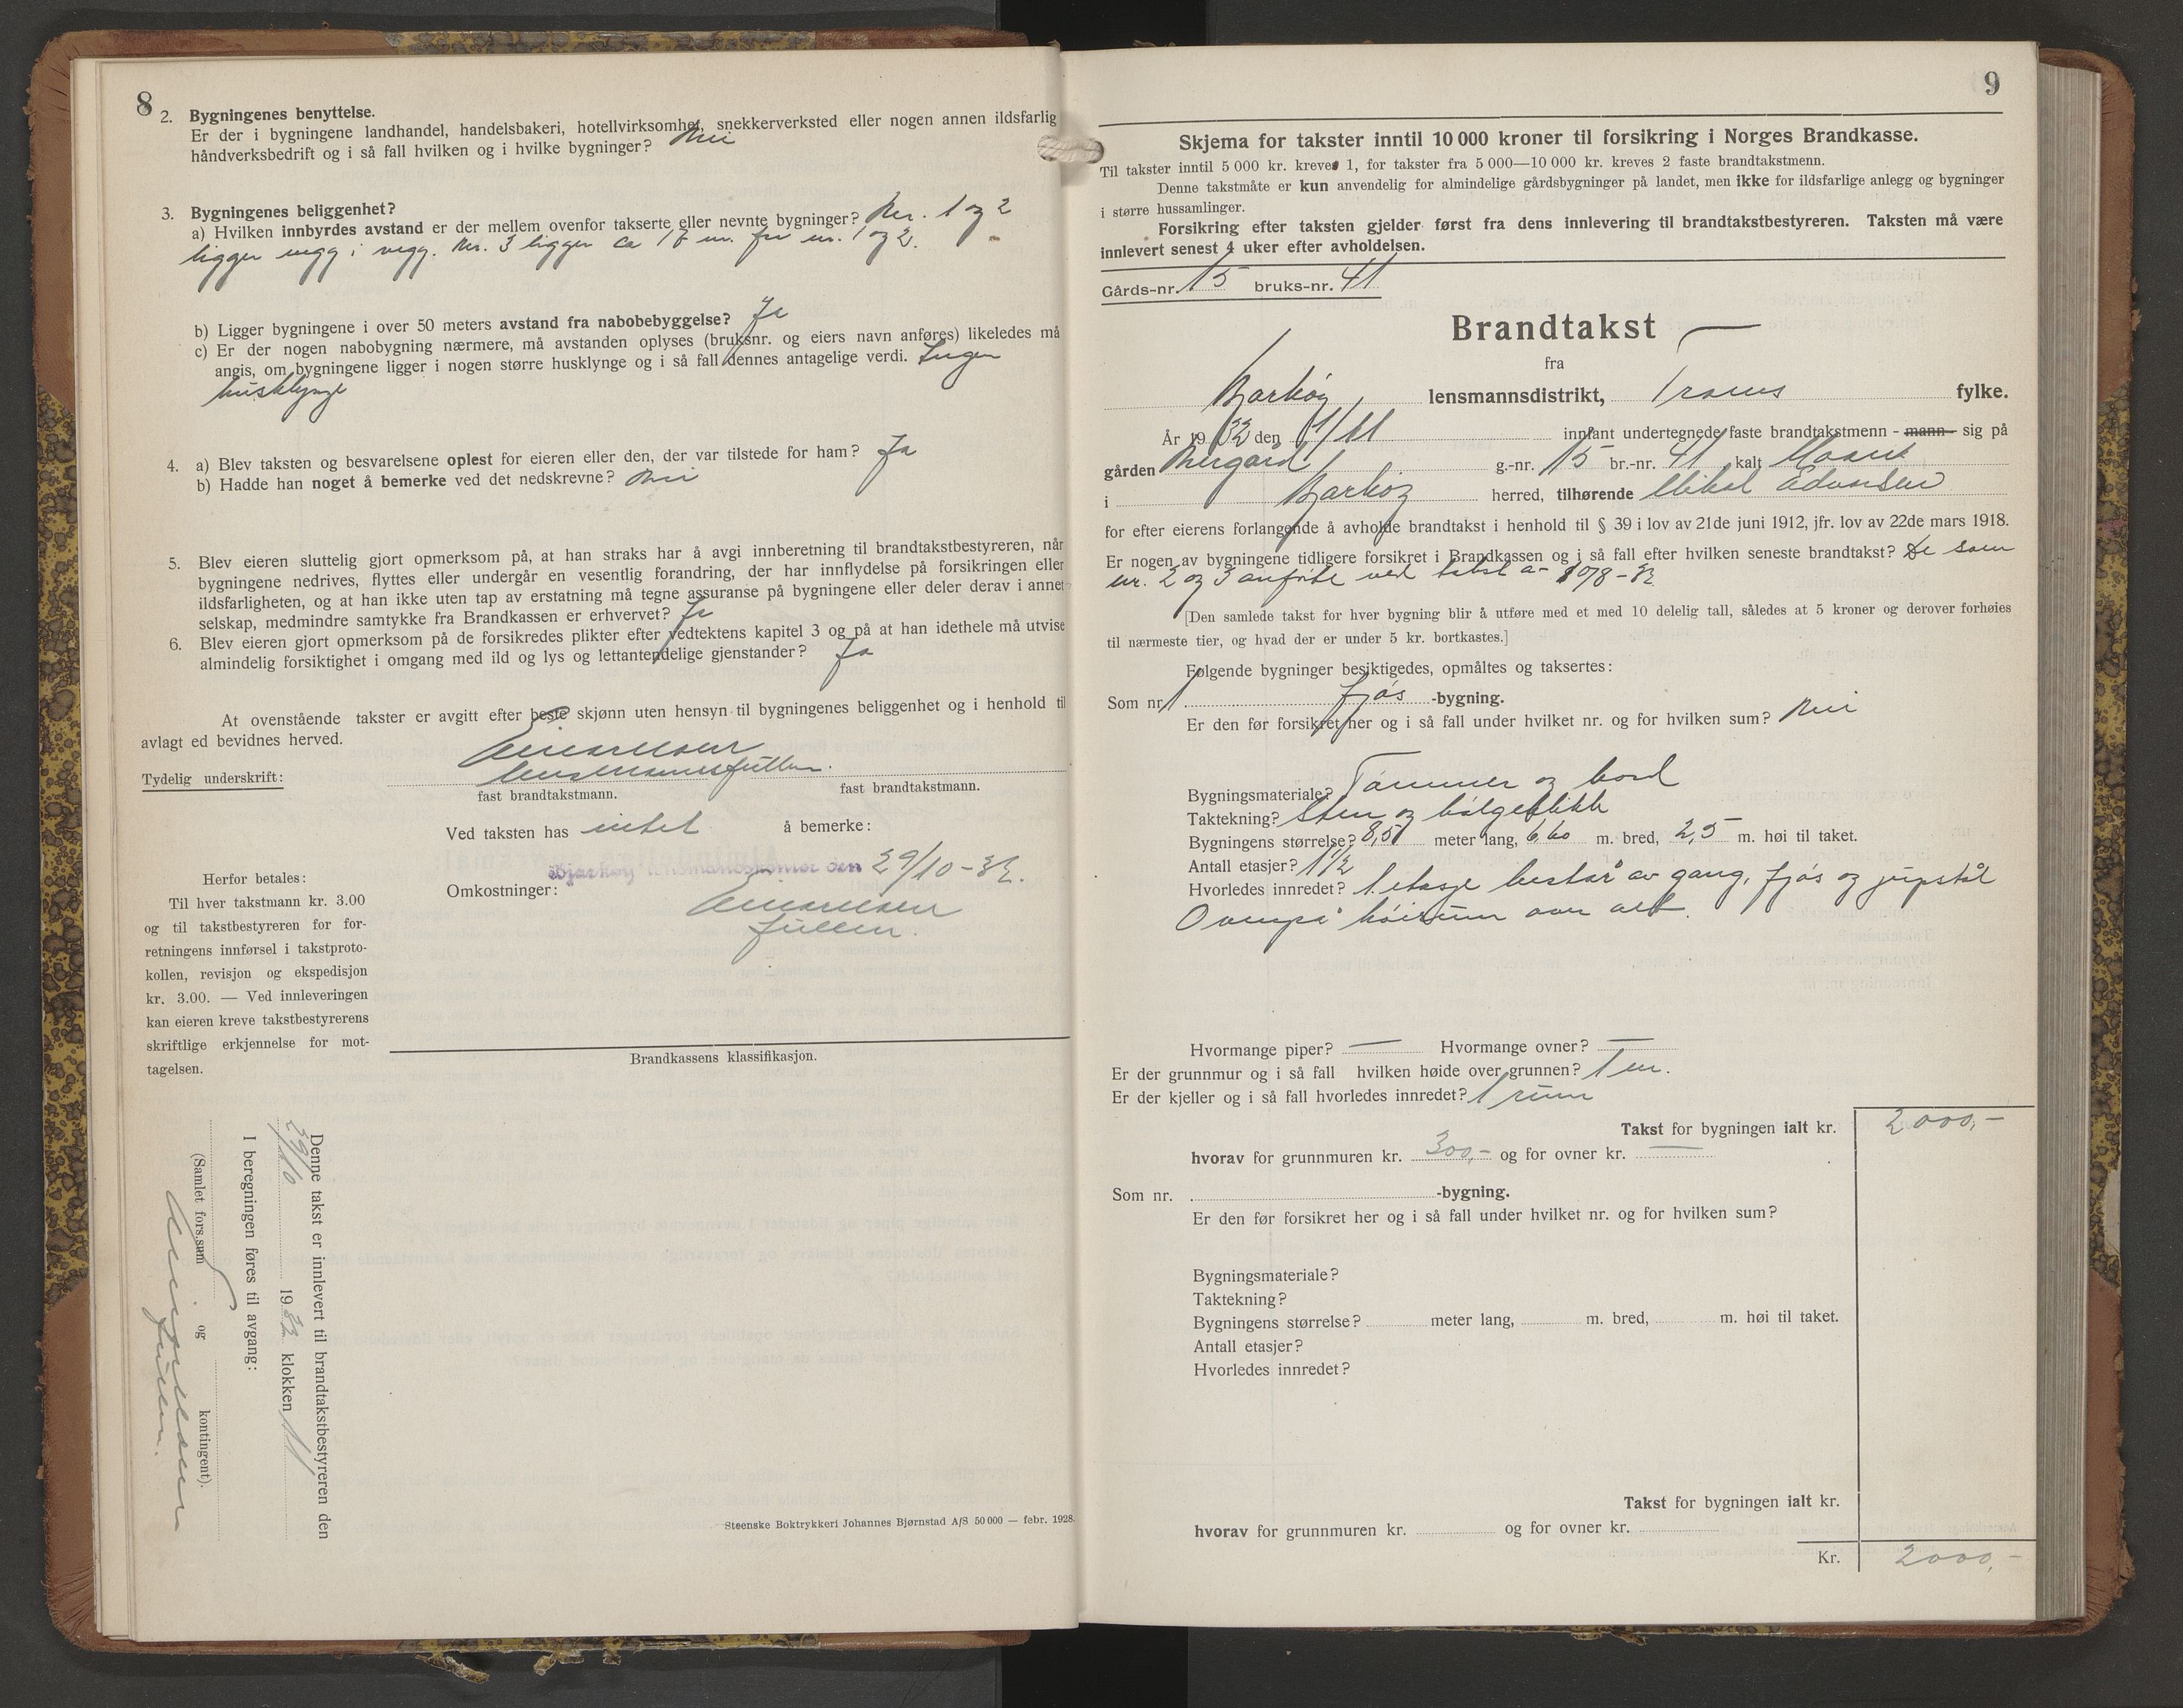 8
2. Bygningenes benyttelse.
Er der i bygningene landhandel, handelsbakeri, hotellvirksomhet, snekkerverksted eller nogen annen ildsfarlig
håndverksbedrift og i så fall hvilken og i hvilke bygninger? Nei
3. Bygningenes beliggenhet?
a) Hvilken innbyrdes avstand er der mellem ovenfor takserte eller nevnte bygninger? Nr. 1 og 2
ligger vegg i vegg. Nr. 3 ligger ca 18 m. fra nr. 1 og 2.
b) Ligger bygningene i over 50 meters avstand fra nabobebyggelse? Ja
c) Er der nogen nabobygning nærmere, må avstanden oplyses (bruksnr. og eiers navn anføres) likeledes må
angis, om bygningene ligger i nogen større husklynge og i så fall dennes antagelige verdi. Ingen
husklynge
4. a) Blev taksten og besvarelsene oplest for eieren eller den, der var tilstede for ham? Ja
b) Hadde han noget å bemerke ved det nedskrevne? Nei
5. Blev eieren sluttelig gjort opmerksom på, at han straks har å avgi innberetning til brandtakstbestyreren, når
bygningene nedrives, flyttes eller undergår en vesentlig forandring, der har innflydelse på forsikringen eller
ildsfarligheten, og at han ikke uten tap av erstatning må tegne assuranse på bygningene eller deler derav i annet
selskap, medmindre samtykke fra Brandkassen er erhvervet? Ja
6. Blev eieren gjort opmerksom på de forsikredes plikter efter vedtektens kapitel 3 og på at han idethele må utvise
almindelig forsiktighet i omgang med ild og lys og lettantendelige gjenstander? Ja
At ovenstående takster er avgitt efter beste skjønn uten hensyn til bygningenes beliggenhet og i henhold til
avlagt ed bevidnes herved.
Tydelig underskrift: lensmannsfullm.
fast brandtakstmann. fast brandtakstmann.
Ved taksten has intet å bemerke:
Bjarkøy lensmannskontor den 29/10-32.
Omkostninger:
fullm.
Herfor betales:
Til hver takstmann kr. 3.00
og til takstbestyreren for for-
retningens innførsel i takstproto-
kollen, revisjon og ekspedisjon
kr. 3.00. — Ved innleveringen
kan eieren kreve takstbestyrerens
skriftlige erkjennelse for mot-
tagelsen.
Brandkassens klassifikasjon.
Denne takst er innlevert til brandtakstbestyreren den
29/10 1932 klokken 11
I beregningen føres til avgang:
(Samlet fors.sum og kontingent).
fullm.
Steenske Boktrykkeri Johannes Bjørnstad A/S 50 000 — febr. 1928.
9
Skjema for takster inntil 10 000 kroner til forsikring i Norges Brandkasse.
Til takster inntil 5 000 kr. kreves 1, for takster fra 5 000—10 000 kr. kreves 2 faste brandtakstmenn.
Denne takstmåte er kun anvendelig for almindelige gårdsbygninger på landet, men ikke for ildsfarlige anlegg og bygninger
i større hussamlinger.
Forsikring efter taksten gjelder først fra dens innlevering til brandtakstbestyreren. Taksten må være
innlevert senest 4 uker efter avholdelsen.
Gårds-nr. 15 bruks-nr. 41
Brandtakst
fra
Bjarkøy lensmannsdistrikt, Troms fylke.
År 1932 den 1/11 innfant undertegnede faste brandtakstmenn - mann- sig på
gården Nergård g.-nr. 15 br.-nr. 41 kalt
i Bjarkøy herred, tilhørende Mikal Edvardsen
for efter eierens forlangende å avholde brandtakst i henhold til § 39 i lov av 21de juni 1912, jfr. lov av 22de mars 1918.
Er nogen av bygningene tidligere forsikret i Brandkassen og i så fall efter hvilken seneste brandtakst? De som
nr. 2 og 3 anførte ved takst a- 10/8-32
[Den samlede takst for hver bygning blir å utføre med et med 10 delelig tall, således at 5 kroner og derover forhøies
til nærmeste tier, og hvad der er under 5 kr. bortkastes.]
Følgende bygninger besiktigedes, opmåltes og taksertes:
Som nr. 1 fjøs -bygning.
Er den før forsikret her og i så fall under hvilket nr. og for hvilken sum? Nei
Bygningsmateriale? Tømmer og bord
Taktekning? Sten og bølgeblikk
Bygningens størrelse? 8,57 meter lang, 6,60 m. bred, 2,5 m. høi til taket.
Antall etasjer? 1½
Hvorledes innredet? 1. etasje består av gang, fjøs og jupstål
Ovenpå høirum over alt.
Hvormange piper? — Hvormange ovner? —
Er der grunnmur og i så fall hvilken høide over grunnen? 1 m.
Er der kjeller og i så fall hvorledes innredet? 1 rum
Takst for bygningen ialt kr. 2000,-
hvorav for grunnmuren kr. 300,- og for ovner kr. —
Som nr. -bygning.
Er den før forsikret her og i så fall under hvilket nr. og for hvilken sum?
Bygningsmateriale?
Taktekning?
Bygningens størrelse? meter lang, m. bred, m. høi til taket.
Antall etasjer?
Hvorledes innredet?
Takst for bygningen ialt kr.
hvorav for grunnmuren kr. og for ovner kr.
Kr. 2000,-